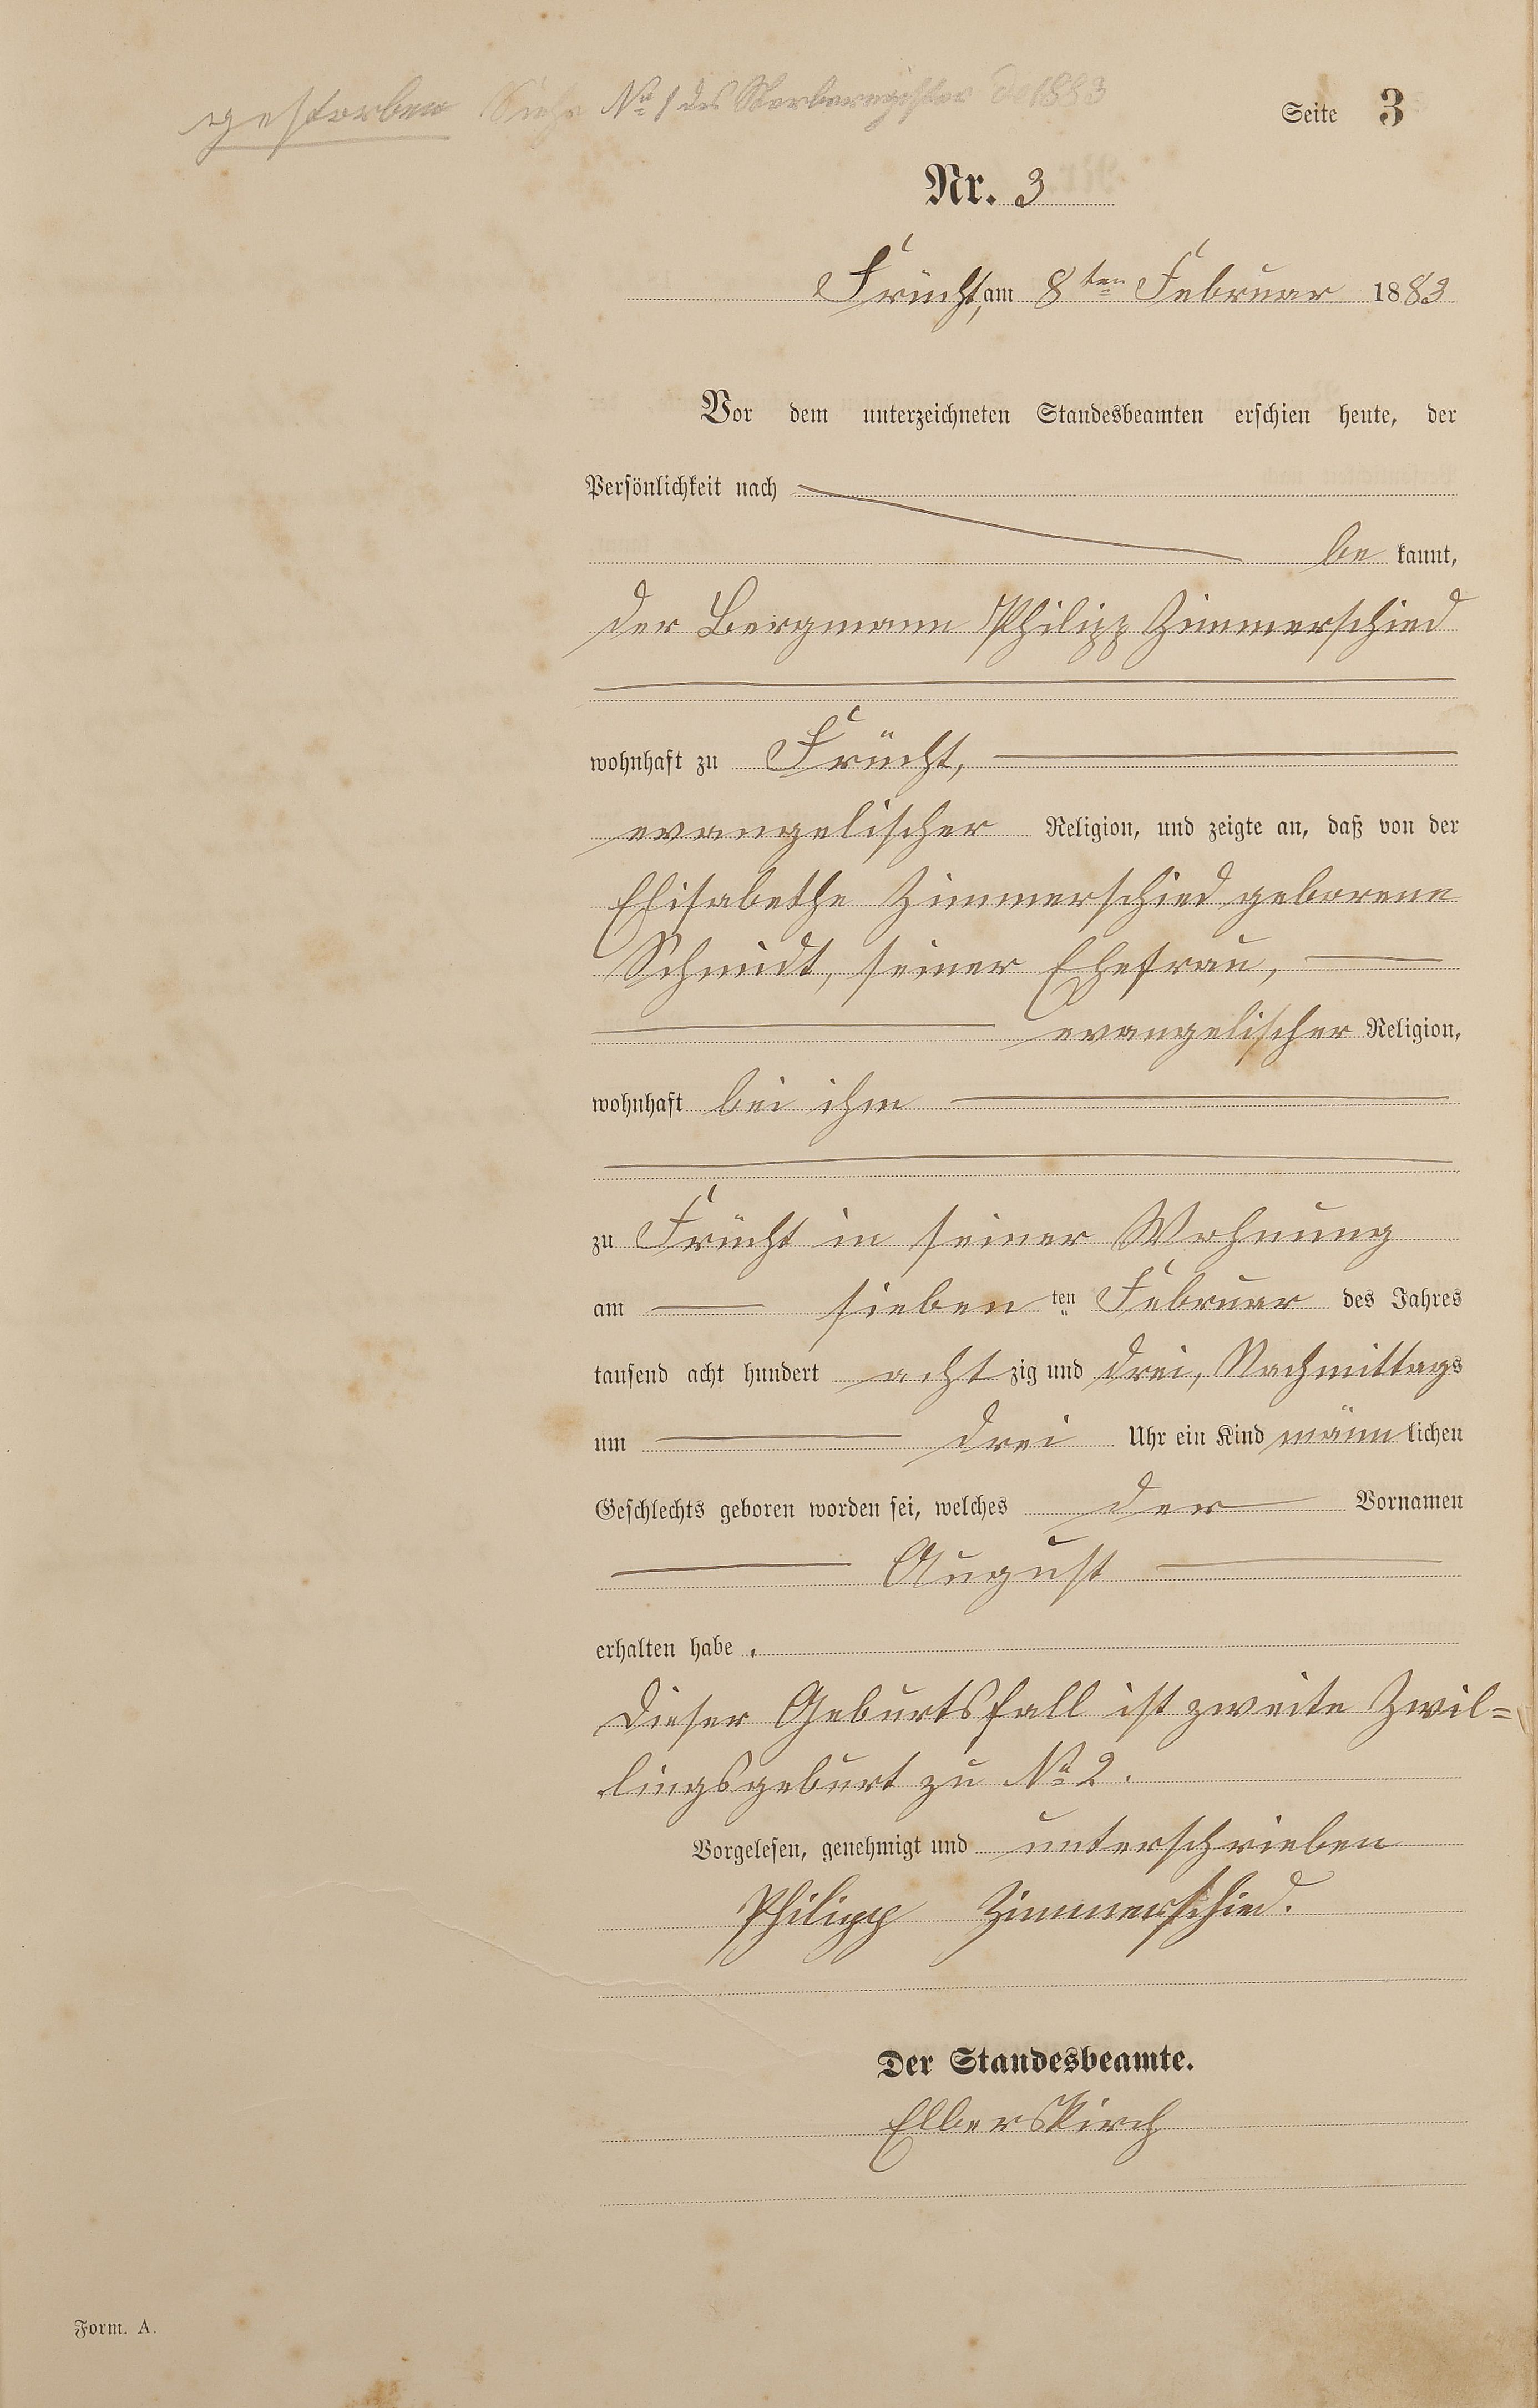 gestorben Siehe No 1 des Sterberegister de 1883
Seite 3
Nr. 3
Frücht, am 8ten Februar 1883
Vor dem unterzeichneten Standesbeamten erschien heute, der
Persönlichkeit nach
be kannt,
der Bergmann Philipp Zimmerschied
wohnhaft zu Frücht,
evangelischer Religion, und zeigte an, daß von der
Elisabethe Zimmerschied geborene
Schmidt, seiner Ehefrau,
evangelischer Religion,
wohnhaft bei ihm
zu Frücht in seiner Wohnung
am sieben ten Februar des Jahres
tausend acht hundert acht zig und drei, Nachmittags
um drei Uhr ein Kind männ lichen
Geschlechts geboren worden sei, welches den Vornamen
August
erhalten habe .
Dieser Geburtsfall ist zweite Zwil=
lingsgeburt zu No 2.
Vorgelesen, genehmigt und unterschrieben
Philipp Zimmerschied.
Der Standesbeamte.
Elberskirch
Form. A.